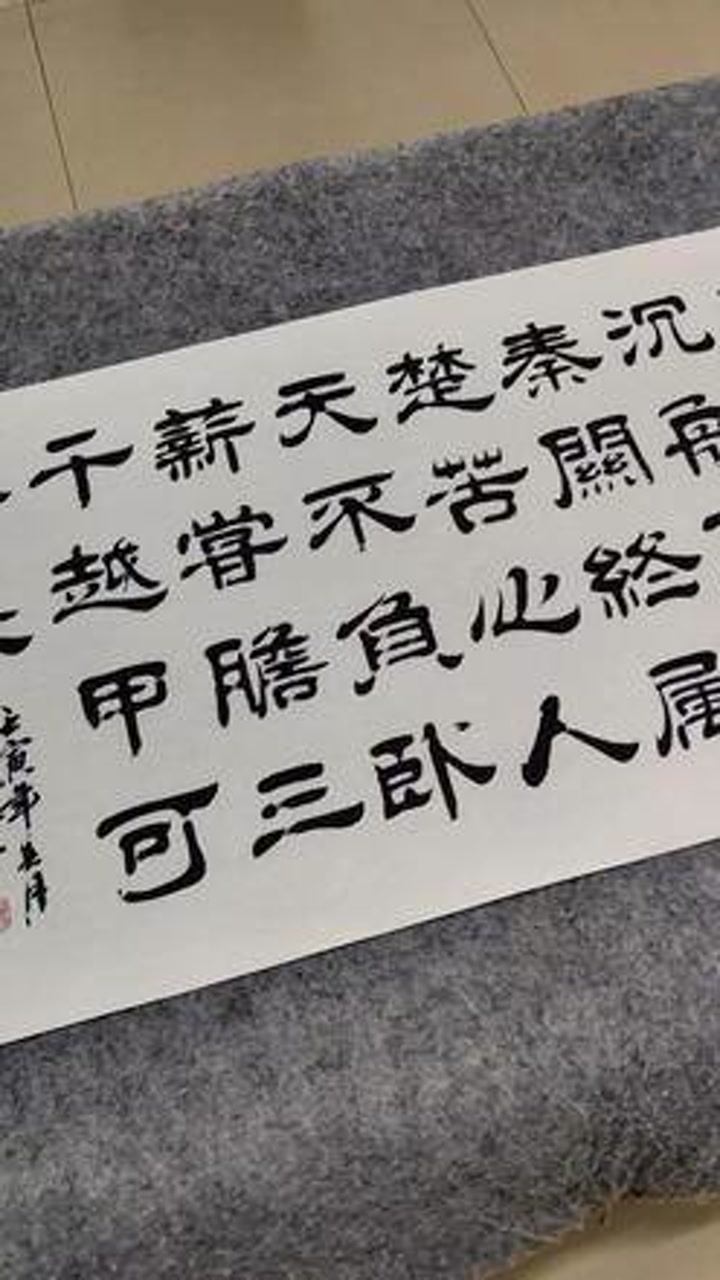 沉舟
秦關終属
楚苦心人
天不負卧
薪嘗膽三
千越甲可
壬寅年